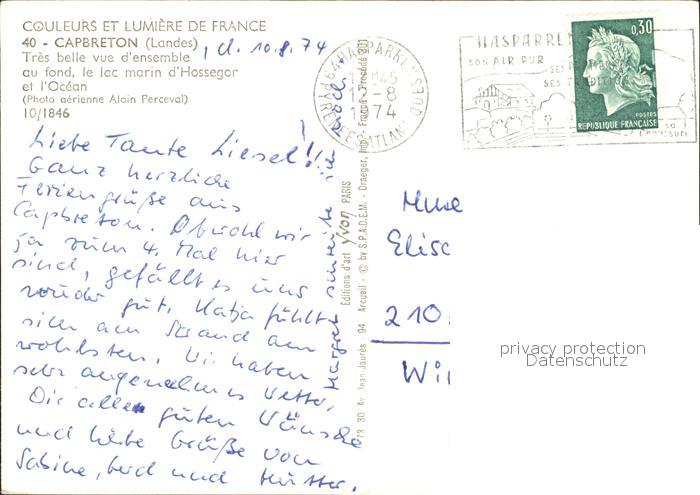 COULEURS ET LUMIÈRE DE FRANCE
40 - CAPBRETON (Landes)
Très belle vue d'ensemble
au fond, le lac marin d'Hossegor
et l'Océan
(Photo aérienne Alain Perceval)
10/1846
, d. 10.8.74
Liebe Tante Liesel!
Ganz herzliche
Feriengrüße aus
Capbreton. Obwohl wir
ja zum 4. Mal hier
sind, gefällt es uns
wieder gut. Katja fühlt
sich am Strand am
wohlsten. Wir haben
sehr angenehmes Wetter.
Dir alles guten Wünsche
und liebe Grüße von
Sabine, Gerd und Mutter.
Margret schreibe
Editions d'art yvon PARIS
73, 30 Av. Jean Jaurès - 94 Arcueil - © by S.P.A.D.E.M. - Draeger, imp. France - Procédé
64 HASPARREN
PYRENEES ATLAN
1645
12-8
1974
HASPARREN
SON AIR PUR
0,30
POSTES
REPUBLIQUE FRANÇAISE
Elisc
210
Wil
privacy protection
Datenschutz